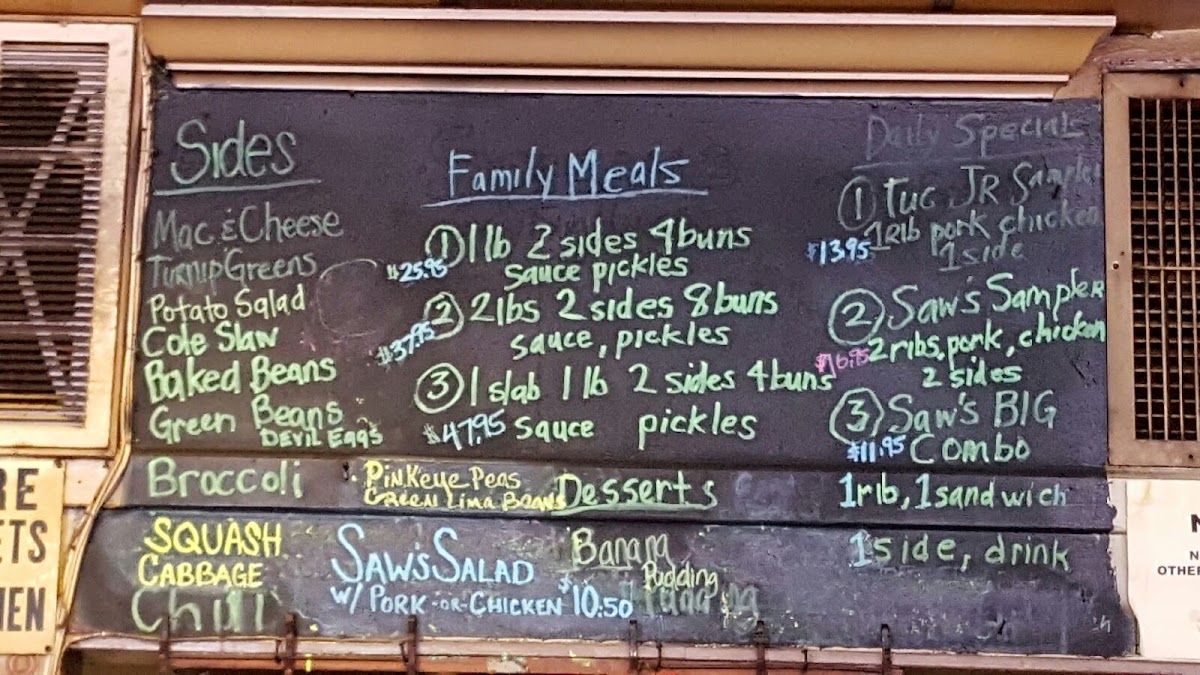 Sides
Mac & Cheese
Turnip Greens
Potato Salad
Cole Slaw
Baked Beans
Green Beans
DEVIL EGGS
Broccoli
PINKeye Peas
GREEN Lima BeaNs
SQUASH
CABBAGE
Chili
Family Meals
① 1 lb 2 sides 4 buns
$25.95 sauce pickles
② 2 lbs 2 sides 8 buns
$37.95 sauce, pickles
③ 1 slab 1 lb 2 sides 4 buns
$47.95 sauce pickles
Desserts
Banana
Pudding
SAW'S SALAD
W/ PORK -OR- CHICKEN $10.50
Daily Special
① Tuc JR Sampler
1 Rib pork chicken
$13.95 1 side
② Saw's Sampler
$16.95 2 ribs, pork, chicken
2 sides
③ Saw's BIG
$11.95 Combo
1 rib, 1 sandwich
1 side, drink
RE
ETS
EN
N
OTHER